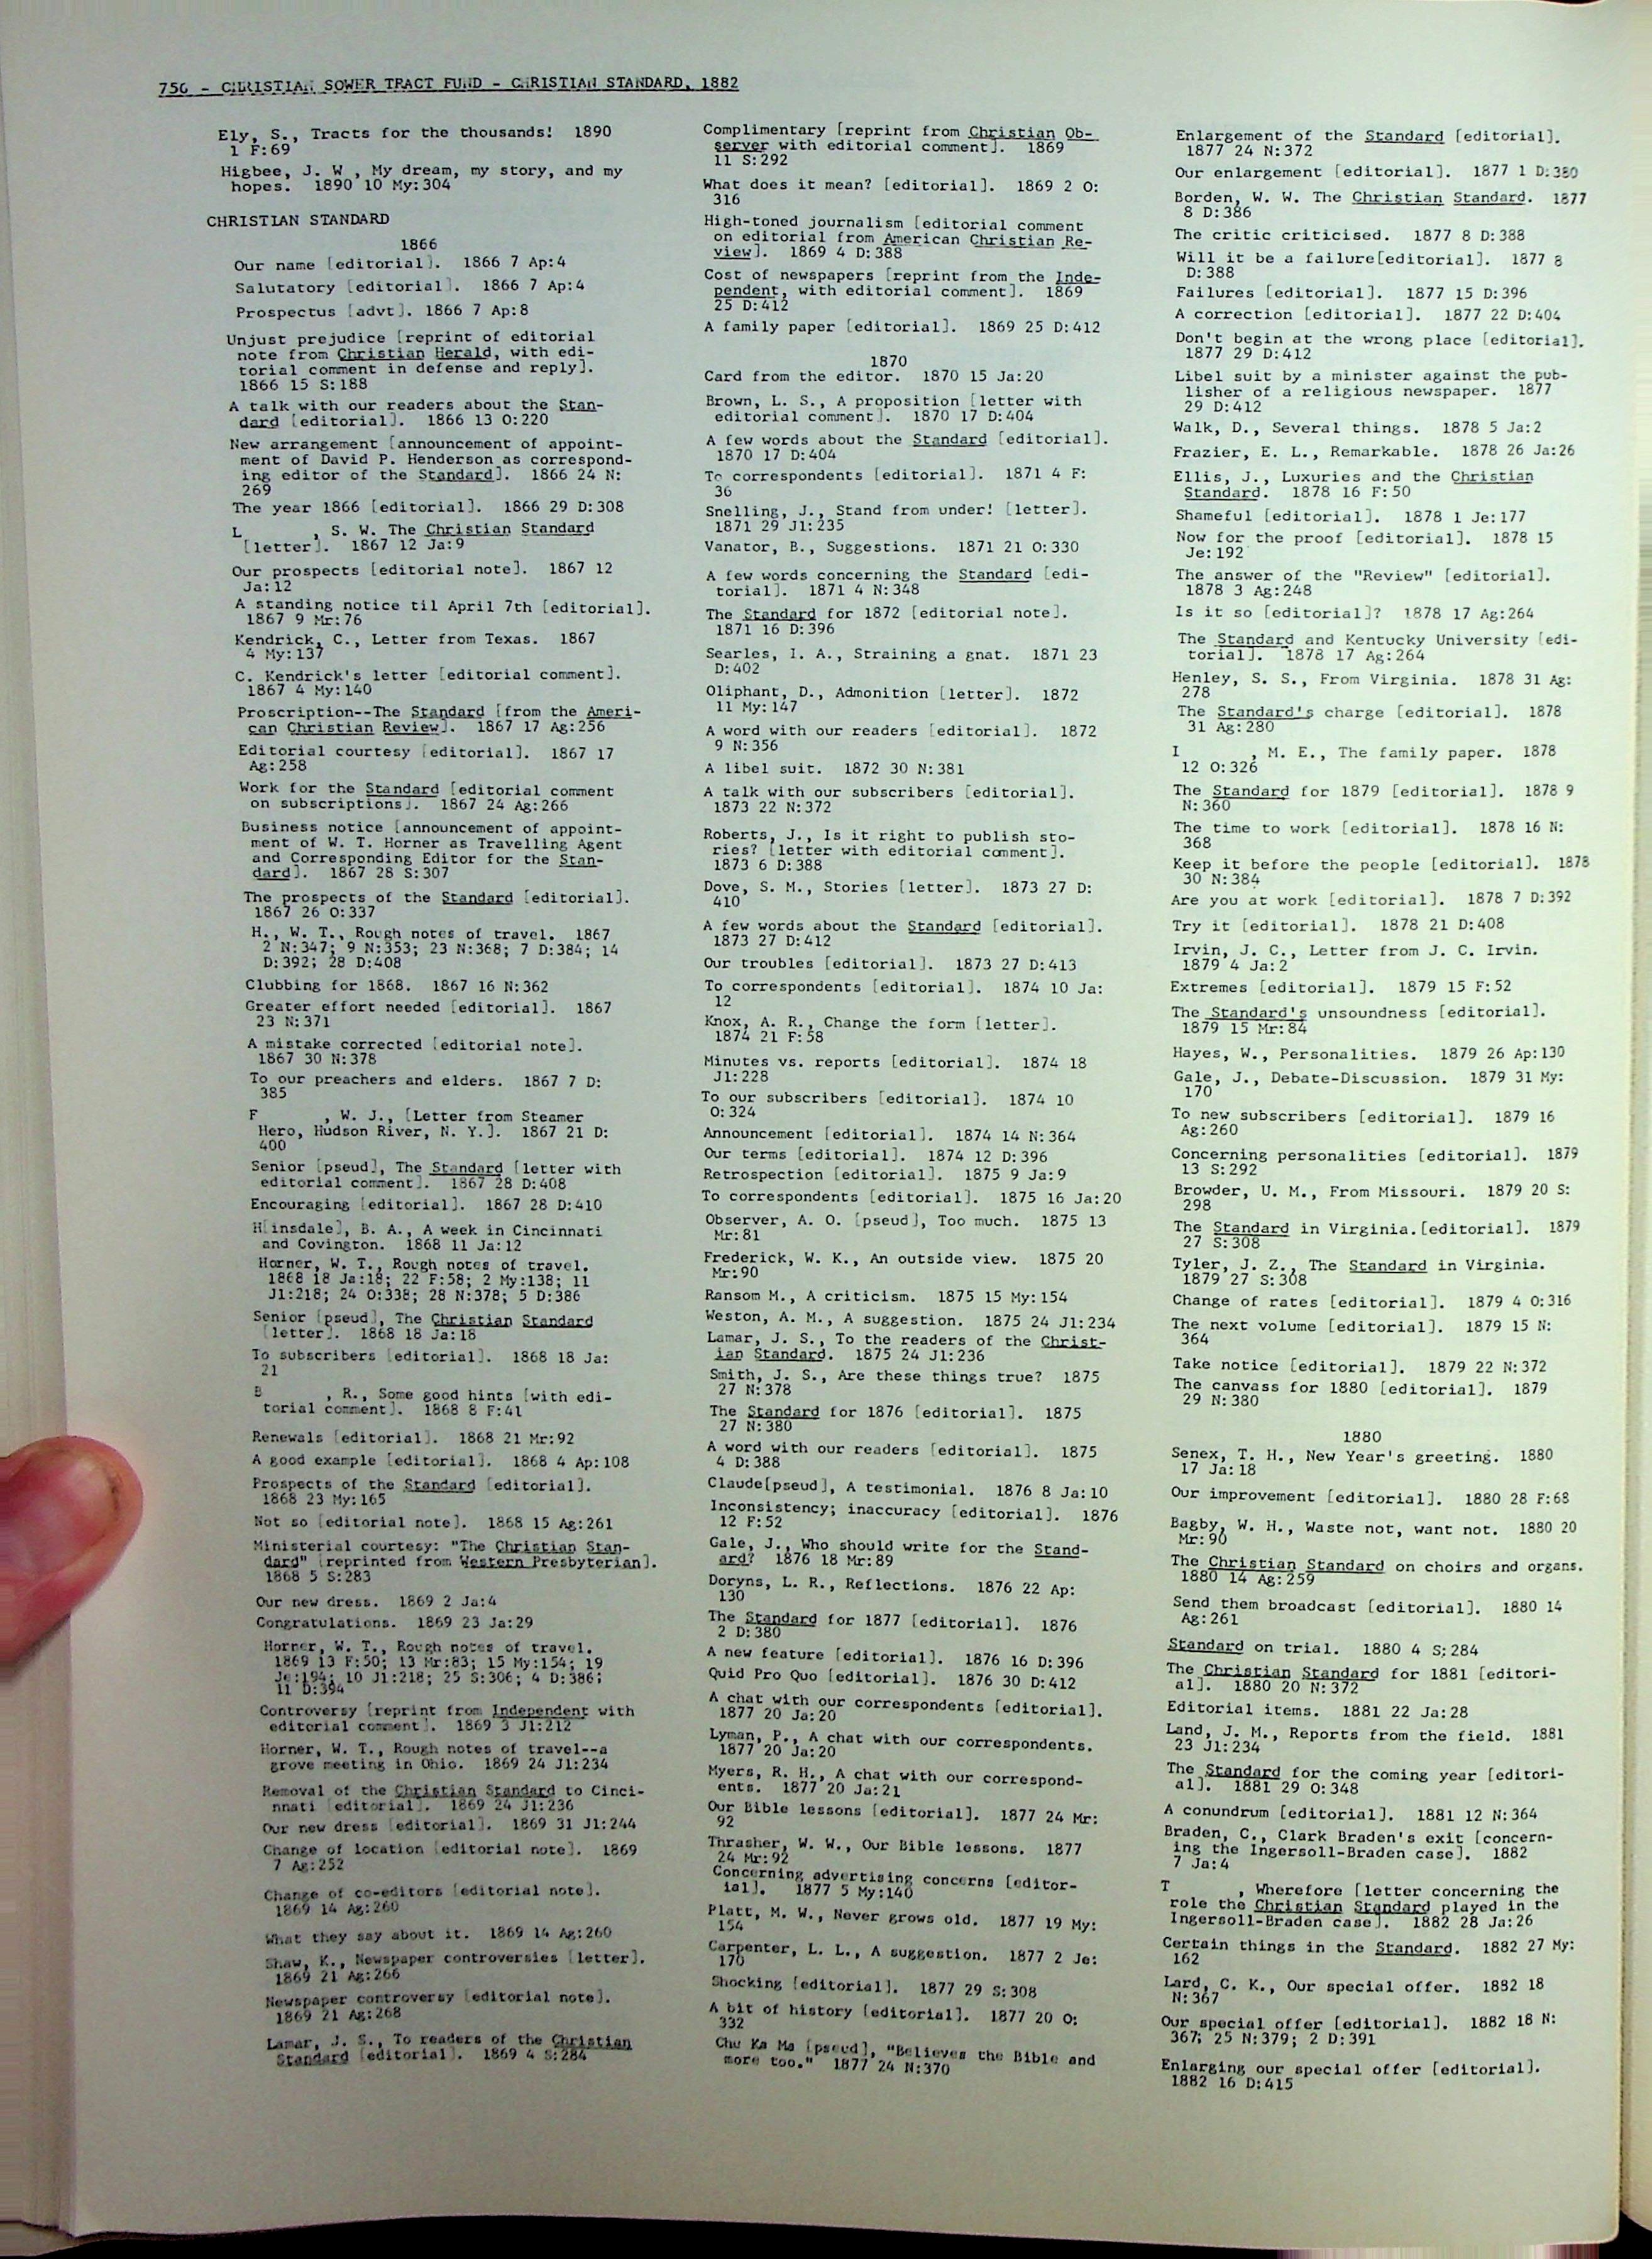 756 - CHRISTIAN SOWER TRACT FUND - CHRISTIAN STANDARD, 1882
Ely, S., Tracts for the thousands! 1890
1 F:69
Higbee, J. W , My dream, my story, and my
hopes. 1890 10 My:304
CHRISTIAN STANDARD
1866
Our name [editorial]. 1866 7 Ap:4
Salutatory [editorial]. 1866 7 Ap:4
Prospectus [advt]. 1866 7 Ap:8
Unjust prejudice [reprint of editorial
note from Christian Herald, with edi-
torial comment in defense and reply].
1866 15 S:188
A talk with our readers about the Stan-
dard [editorial]. 1866 13 O:220
New arrangement [announcement of appoint-
ment of David P. Henderson as correspond-
ing editor of the Standard]. 1866 24 N:
269
The year 1866 [editorial]. 1866 29 D:308
L , S. W. The Christian Standard
[letter]. 1867 12 Ja:9
Our prospects [editorial note]. 1867 12
Ja:12
A standing notice til April 7th [editorial].
1867 9 Mr:76
Kendrick, C., Letter from Texas. 1867
4 My:137
C. Kendrick's letter [editorial comment].
1867 4 My:140
Proscription--The Standard [from the Ameri-
can Christian Review]. 1867 17 Ag:256
Editorial courtesy [editorial]. 1867 17
Ag:258
Work for the Standard [editorial comment
on subscriptions]. 1867 24 Ag:266
Business notice [announcement of appoint-
ment of W. T. Horner as Travelling Agent
and Corresponding Editor for the Stan-
dard]. 1867 28 S:307
The prospects of the Standard [editorial].
1867 26 O:337
H., W. T., Rough notes of travel. 1867
2 N:347; 9 N:353; 23 N:368; 7 D:384; 14
D:392; 28 D:408
Clubbing for 1868. 1867 16 N:362
Greater effort needed [editorial]. 1867
23 N:371
A mistake corrected [editorial note].
1867 30 N:378
To our preachers and elders. 1867 7 D:
385
F , W. J., [Letter from Steamer
Hero, Hudson River, N. Y.]. 1867 21 D:
400
Senior [pseud], The Standard [letter with
editorial comment]. 1867 28 D:408
Encouraging [editorial]. 1867 28 D:410
H[insdale], B. A., A week in Cincinnati
and Covington. 1868 11 Ja:12
Horner, W. T., Rough notes of travel.
1868 18 Ja:18; 22 F:58; 2 My:138; 11
Jl:218; 24 O:338; 28 N:378; 5 D:386
Senior [pseud], The Christian Standard
[letter]. 1868 18 Ja:18
To subscribers [editorial]. 1868 18 Ja:
21
B , R., Some good hints [with edi-
torial comment]. 1868 8 F:41
Renewals [editorial]. 1868 21 Mr:92
A good example [editorial]. 1868 4 Ap:108
Prospects of the Standard [editorial].
1868 23 My:165
Not so [editorial note]. 1868 15 Ag:261
Ministerial courtesy: "The Christian Stan-
dard" [reprinted from Western Presbyterian].
1868 5 S:283
Our new dress. 1869 2 Ja:4
Congratulations. 1869 23 Ja:29
Horner, W. T., Rough notes of travel.
1869 13 F:50; 13 Mr:83; 15 My:154; 19
Je:194; 10 Jl:218; 25 S:306; 4 D:386;
11 D:394
Controversy [reprint from Independent with
editorial comment]. 1869 3 Jl:212
Horner, W. T., Rough notes of travel--a
grove meeting in Ohio. 1869 24 Jl:234
Removal of the Christian Standard to Cinci-
nnati [editorial]. 1869 24 Jl:236
Our new dress [editorial]. 1869 31 Jl:244
Change of location [editorial note]. 1869
7 Ag:252
Change of co-editors [editorial note].
1869 14 Ag:260
What they say about it. 1869 14 Ag:260
Shaw, K., Newspaper controversies [letter].
1869 21 Ag:266
Newspaper controversy [editorial note].
1869 21 Ag:268
Lamar, J. S., To readers of the Christian
Standard [editorial]. 1869 4 S:284
Complimentary [reprint from Christian Ob-
server with editorial comment]. 1869
11 S:292
What does it mean? [editorial]. 1869 2 O:
316
High-toned journalism [editorial comment
on editorial from American Christian Re-
view]. 1869 4 D:388
Cost of newspapers [reprint from the Inde-
pendent, with editorial comment]. 1869
25 D:412
A family paper [editorial]. 1869 25 D:412
1870
Card from the editor. 1870 15 Ja:20
Brown, L. S., A proposition [letter with
editorial comment]. 1870 17 D:404
A few words about the Standard [editorial].
1870 17 D:404
To correspondents [editorial]. 1871 4 F:
36
Snelling, J., Stand from under! [letter].
1871 29 Jl:235
Vanator, B., Suggestions. 1871 21 O:330
A few words concerning the Standard [edi-
torial]. 1871 4 N:348
The Standard for 1872 [editorial note].
1871 16 D:396
Searles, I. A., Straining a gnat. 1871 23
D:402
Oliphant, D., Admonition [letter]. 1872
11 My:147
A word with our readers [editorial]. 1872
9 N:356
A libel suit. 1872 30 N:381
A talk with our subscribers [editorial].
1873 22 N:372
Roberts, J., Is it right to publish sto-
ries? [letter with editorial comment].
1873 6 D:388
Dove, S. M., Stories [letter]. 1873 27 D:
410
A few words about the Standard [editorial].
1873 27 D:412
Our troubles [editorial]. 1873 27 D:413
To correspondents [editorial]. 1874 10 Ja:
12
Knox, A. R., Change the form [letter].
1874 21 F:58
Minutes vs. reports [editorial]. 1874 18
Jl:228
To our subscribers [editorial]. 1874 10
O:324
Announcement [editorial]. 1874 14 N:364
Our terms [editorial]. 1874 12 D:396
Retrospection [editorial]. 1875 9 Ja:9
To correspondents [editorial]. 1875 16 Ja:20
Observer, A. O. [pseud], Too much. 1875 13
Mr:81
Frederick, W. K., An outside view. 1875 20
Mr:90
Ransom M., A criticism. 1875 15 My:154
Weston, A. M., A suggestion. 1875 24 Jl:234
Lamar, J. S., To the readers of the Christ-
ian Standard. 1875 24 Jl:236
Smith, J. S., Are these things true? 1875
27 N:378
The Standard for 1876 [editorial]. 1875
27 N:380
A word with our readers [editorial]. 1875
4 D:388
Claude[pseud], A testimonial. 1876 8 Ja:10
Inconsistency; inaccuracy [editorial]. 1876
12 F:52
Gale, J., Who should write for the Stand-
ard? 1876 18 Mr:89
Doryns, L. R., Reflections. 1876 22 Ap:
130
The Standard for 1877 [editorial]. 1876
2 D:380
A new feature [editorial]. 1876 16 D:396
Quid Pro Quo [editorial]. 1876 30 D:412
A chat with our correspondents [editorial].
1877 20 Ja:20
Lyman, P., A chat with our correspondents.
1877 20 Ja:20
Myers, R. H., A chat with our correspond-
ents. 1877 20 Ja:21
Our Bible lessons [editorial]. 1877 24 Mr:
92
Thrasher, W. W., Our Bible lessons. 1877
24 Mr:92
Concerning advertising concerns [editor-
ial]. 1877 5 My:140
Platt, M. W., Never grows old. 1877 19 My:
154
Carpenter, L. L., A suggestion. 1877 2 Je:
170
Shocking [editorial]. 1877 29 S:308
A bit of history [editorial]. 1877 20 O:
332
Chu Ka Ma [pseud], "Believes the Bible and
more too." 1877 24 N:370
Enlargement of the Standard [editorial].
1877 24 N:372
Our enlargement [editorial]. 1877 1 D:380
Borden, W. W. The Christian Standard. 1877
8 D:386
The critic criticised. 1877 8 D:388
Will it be a failure[editorial]. 1877 8
D:388
Failures [editorial]. 1877 15 D:396
A correction [editorial]. 1877 22 D:404
Don't begin at the wrong place [editorial].
1877 29 D:412
Libel suit by a minister against the pub-
lisher of a religious newspaper. 1877
29 D:412
Walk, D., Several things. 1878 5 Ja:2
Frazier, E. L., Remarkable. 1878 26 Ja:26
Ellis, J., Luxuries and the Christian
Standard. 1878 16 F:50
Shameful [editorial]. 1878 1 Je:177
Now for the proof [editorial]. 1878 15
Je:192
The answer of the "Review" [editorial].
1878 3 Ag:248
Is it so [editorial]? 1878 17 Ag:264
The Standard and Kentucky University [edi-
torial]. 1878 17 Ag:264
Henley, S. S., From Virginia. 1878 31 Ag:
278
The Standard's charge [editorial]. 1878
31 Ag:280
I , M. E., The family paper. 1878
12 O:326
The Standard for 1879 [editorial]. 1878 9
N:360
The time to work [editorial]. 1878 16 N:
368
Keep it before the people [editorial]. 1878
30 N:384
Are you at work [editorial]. 1878 7 D:392
Try it [editorial]. 1878 21 D:408
Irvin, J. C., Letter from J. C. Irvin.
1879 4 Ja:2
Extremes [editorial]. 1879 15 F:52
The Standard's unsoundness [editorial].
1879 15 Mr:84
Hayes, W., Personalities. 1879 26 Ap:130
Gale, J., Debate-Discussion. 1879 31 My:
170
To new subscribers [editorial]. 1879 16
Ag:260
Concerning personalities [editorial]. 1879
13 S:292
Browder, U. M., From Missouri. 1879 20 S:
298
The Standard in Virginia.[editorial]. 1879
27 S:308
Tyler, J. Z., The Standard in Virginia.
1879 27 S:308
Change of rates [editorial]. 1879 4 O:316
The next volume [editorial]. 1879 15 N:
364
Take notice [editorial]. 1879 22 N:372
The canvass for 1880 [editorial]. 1879
29 N:380
1880
Senex, T. H., New Year's greeting. 1880
17 Ja:18
Our improvement [editorial]. 1880 28 F:68
Bagby, W. H., Waste not, want not. 1880 20
Mr:90
The Christian Standard on choirs and organs.
1880 14 Ag:259
Send them broadcast [editorial]. 1880 14
Ag:261
Standard on trial. 1880 4 S;284
The Christian Standard for 1881 [editori-
al]. 1880 20 N:372
Editorial items. 1881 22 Ja:28
Land, J. M., Reports from the field. 1881
23 Jl:234
The Standard for the coming year [editori-
al]. 1881 29 O:348
A conundrum [editorial]. 1881 12 N:364
Braden, C., Clark Braden's exit [concern-
ing the Ingersoll-Braden case]. 1882
7 Ja:4
T , Wherefore [letter concerning the
role the Christian Standard played in the
Ingersoll-Braden case]. 1882 28 Ja:26
Certain things in the Standard. 1882 27 My:
162
Lard, C. K., Our special offer. 1882 18
N:367
Our special offer [editorial]. 1882 18 N:
367; 25 N:379; 2 D:391
Enlarging our special offer [editorial].
1882 16 D:415